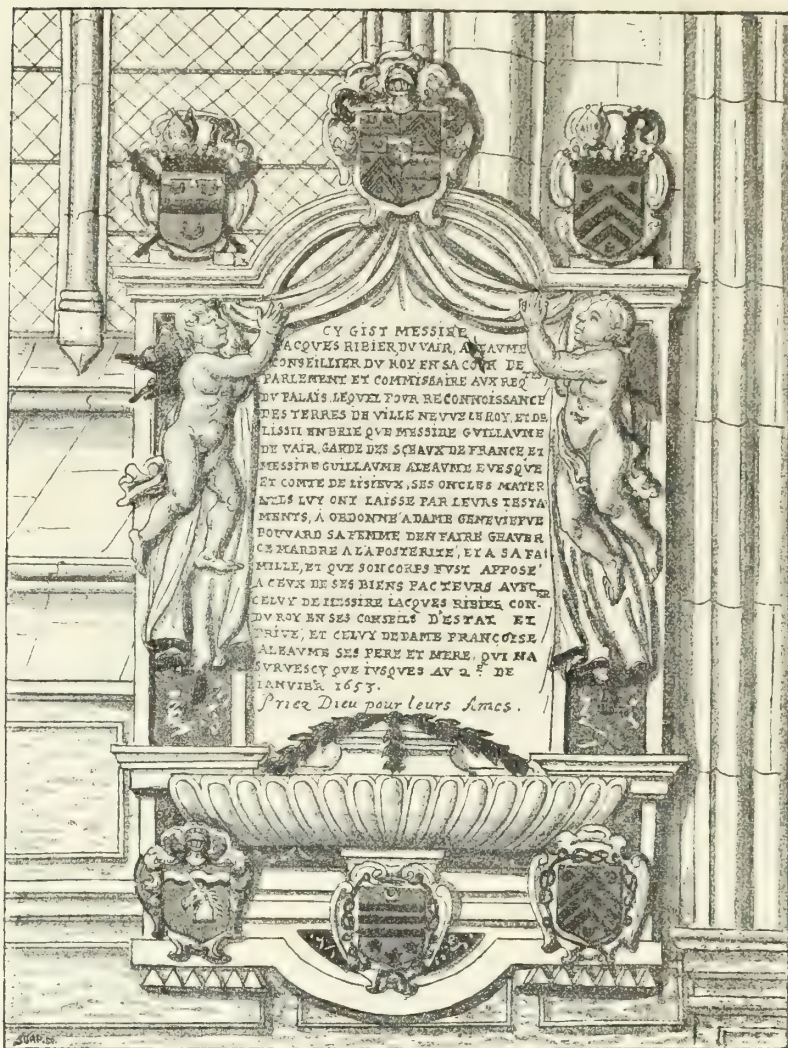 CY GIST MESSIRE
IACQVES RIBIER DV VAIR, ALEAVME
CONSEILLIER DV ROY EN SA COVR DE
PARLEMENT ET COMMISSAIRE AVX REQ^TES
DV PALAIS, LEQVEL POVR RECONNOISSANCE
DES TERRES DE VILLE NEVVE LE ROY, ET DE
EN BRIE QVE MESSIRE GVILLAVME
DE VAIR, GARDE DES SCEAVX DE FRANCE ET
MESSIRE GVILLAVME ALEAVME EVESQVE
ET COMTE DE LISIEVX, SES ONCLES MATER
NELS LVY ONT LAISSE PAR LEVRS TESTA
MENTS, A ORDONNE A DAME GENEVIEFVE
BOVVARD SA FEMME D'EN FAIRE GRAVER
CE MARBRE A LA POSTERITE, ET A SA FA
MILLE, ET QVE SON CORPS FVST APPOSE'
A CEVX DE SES BIENS FACTEVRS AVEC
CELVY DE MESSIRE IACQVES RIBIER CON^ER
DV ROY EN SES CONSEILS D'ESTAT ET
PRIVE, ET CELVY DE DAME FRANÇOISE
ALEAVME SES PERE ET MERE, QVI NA
SVRVESCV QVE IVSQVES AV 2^E DE
IANVIER 1653.
Priez Dieu pour leurs Ames.